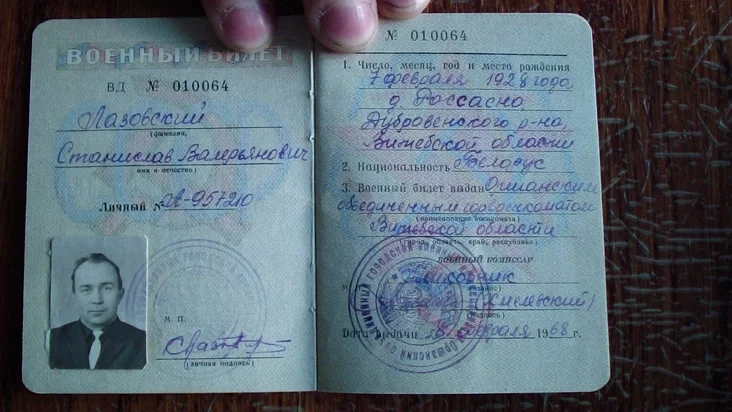 ВОЕННЫЙ БИЛЕТ
ВД № 010064
Лазовский
(фамилия,
Станислав Валерьянович
имя и отчество)
Личный №
М. П.
(личная подпись)
№ 010064
1. Число, месяц, год и место рождения
7 февраля 1928 года,
д. Россасно
Дубровенского р-на,
Витебской области
2. Национальность Беларус
3. Военный билет выдан Оршанским
объединенным горвоенкоматом
(наименование военкомата)
Витебской области
(город, область, край, республика)
ВОЕННЫЙ КОМИССАР
(подпись)
Дата выдачи февраля 1968 г.